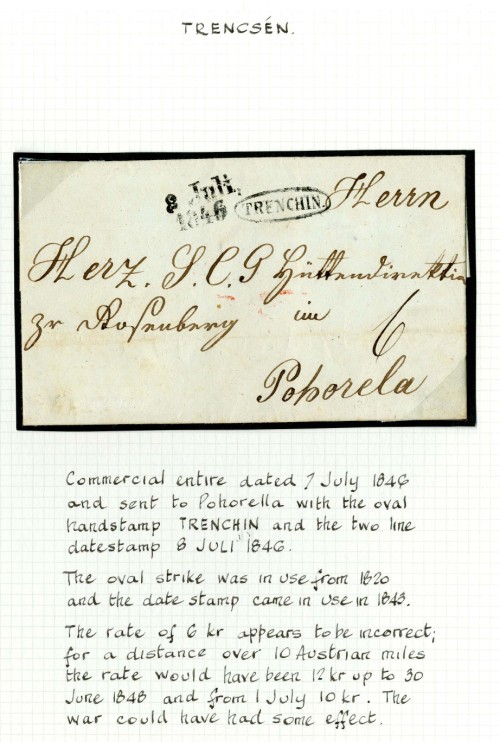 TRENCSÉN.
8 Juli.
1846
TRENCHIN.
Herrn
Herz. S. C. G Hüttendirektion
zr Rosenberg im 6
Pohorela
Commercial entire dated 7 July 1846
and sent to Pohorella with the oval
handstamp TRENCHIN and the two line
datestamp 8 JULI 1846.
The oval strike was in use from 1820
and the date stamp came in use in 1843.
The rate of 6 kr appears to be incorrect;
for a distance over 10 Austrian miles
the rate would have been 12 kr up to 30
June 1848 and from 1 July 10 kr. The
war could have had some effect.